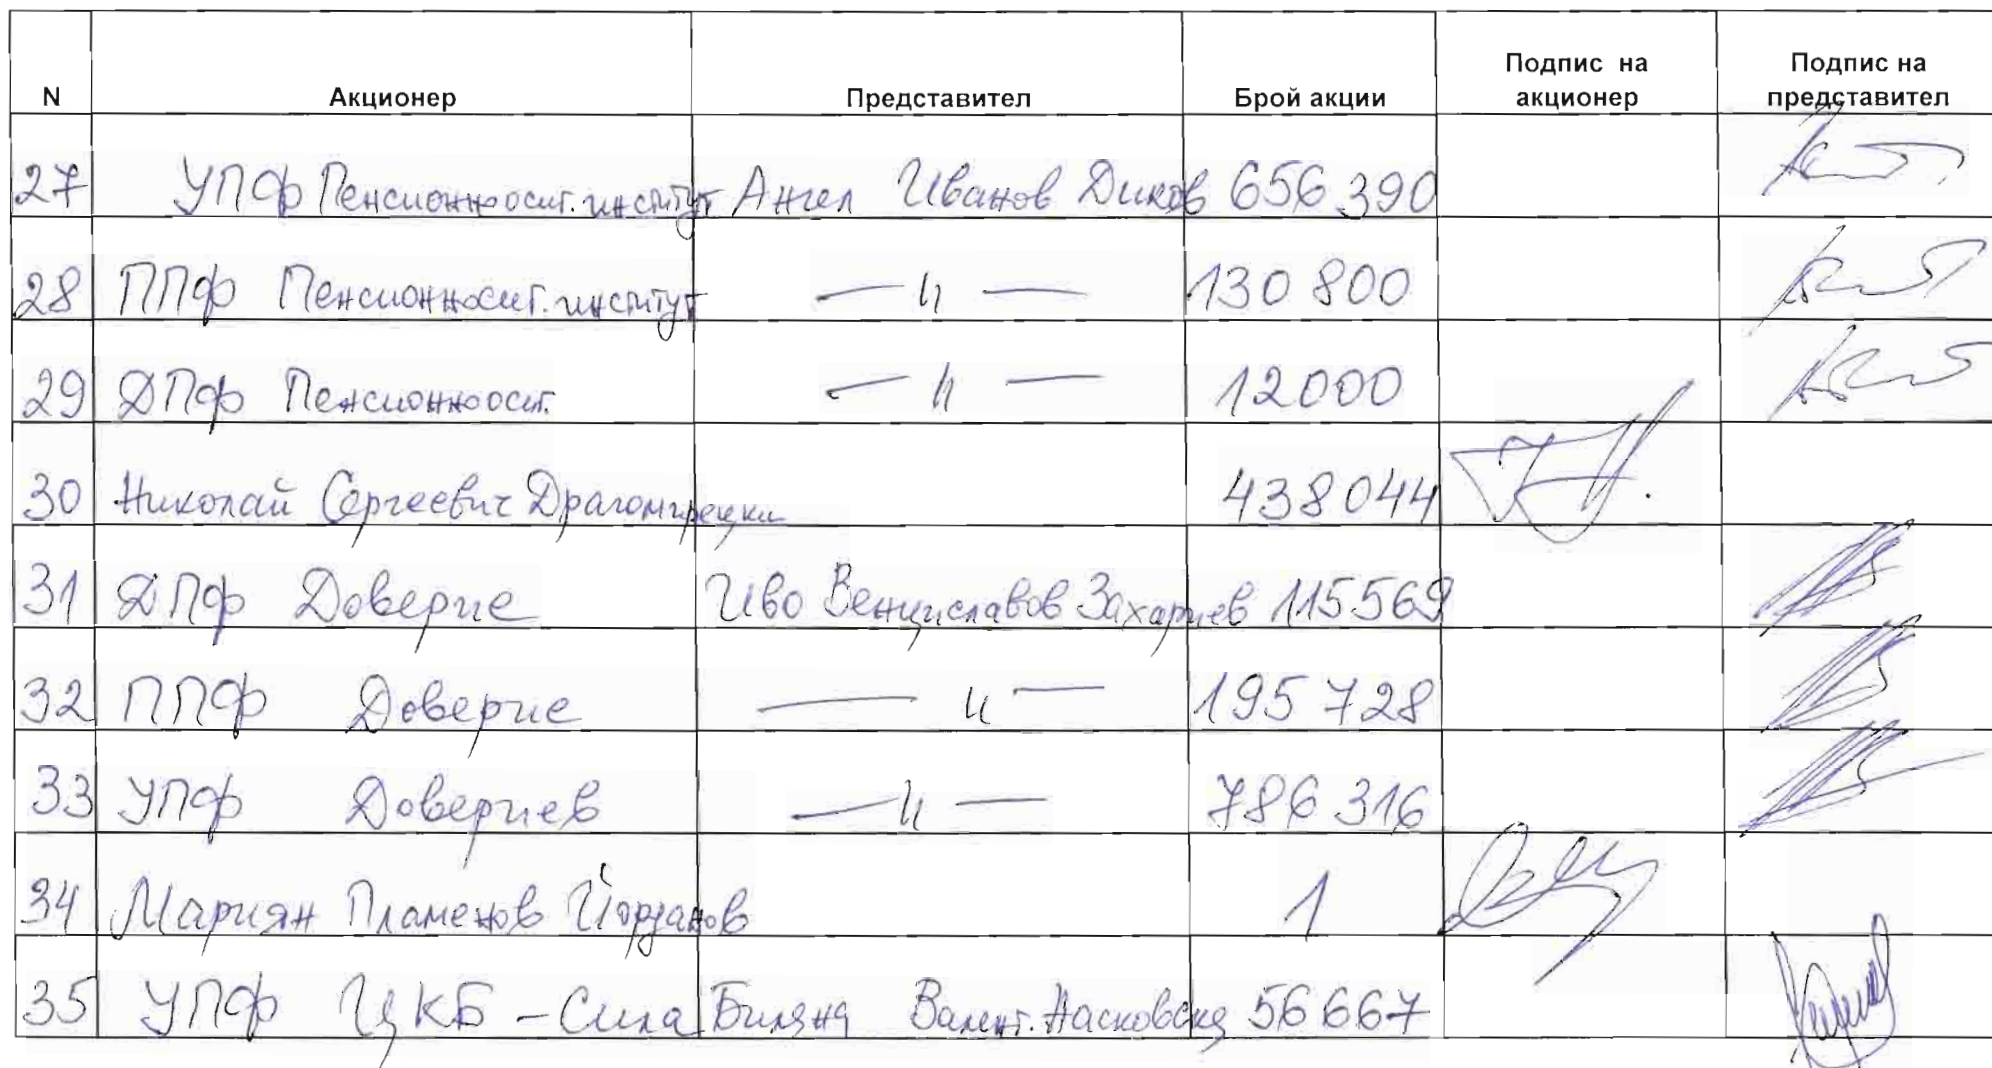 N Акционер Представител Брой акции Подпис на акционер Подпис на представител
27 УПФ Пенсионноосиг. институт Ангел Иванов Диков 656 390
28 ППФ Пенсионноосиг. институт — " — 130 800
29 ДПФ Пенсионноосиг. — " — 12000
30 Николай Сергеевич Драгомирецки 438 044
31 ДПФ Доверие Иво Венциславов Захариев 115 569
32 ППФ Доверие — " — 195 728
33 УПФ Довериев — " — 786 316
34 Мариян Пламенов Йорданов 1
35 УПФ ЦКБ - Сила Биляна Валент. 56 667